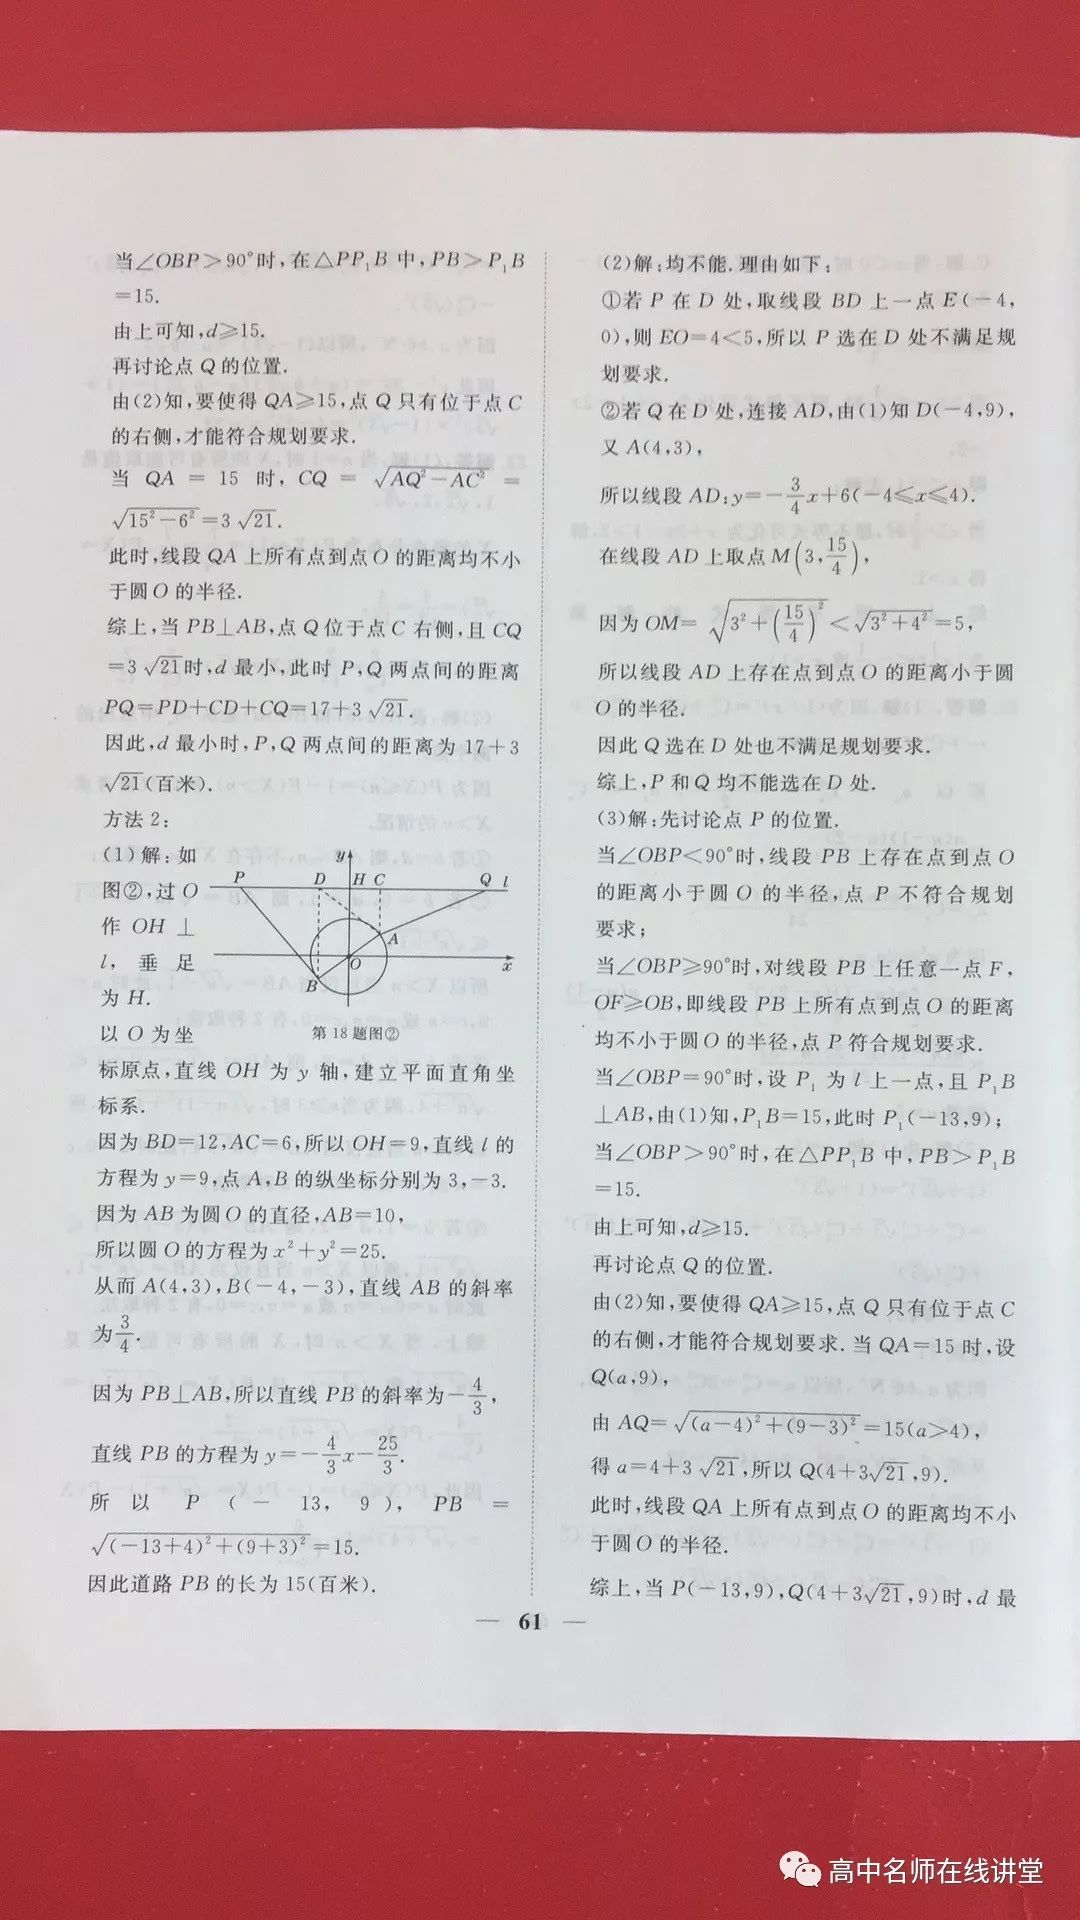 当∠OBP>90°时,在△PP₁B 中,PB>P₁B
=15.
由上可知,d≥15.
再讨论点 Q 的位置.
由(2)知,要使得 QA≥15,点 Q 只有位于点 C
的右侧,才能符合规划要求.
当 QA = 15 时, CQ = √(AQ²-AC²) =
√(15²-6²)=3√21.
此时,线段 QA 上所有点到点 O 的距离均不小
于圆 O 的半径.
综上,当 PB⊥AB,点 Q 位于点 C 右侧,且 CQ
=3√21时,d 最小,此时 P,Q 两点间的距离
PQ=PD+CD+CQ=17+3√21.
因此,d 最小时,P,Q 两点间的距离为 17+3
√21(百米).
方法 2:
(1)解:如
图②,过 O
作 OH ⊥
l, 垂 足
为 H.
以 O 为坐
y
P D H C Q l
A
O x
B
第 18 题图②
标原点,直线 OH 为 y 轴,建立平面直角坐
标系.
因为 BD=12,AC=6,所以 OH=9,直线 l 的
方程为 y=9,点 A,B 的纵坐标分别为 3,-3.
因为 AB 为圆 O 的直径,AB=10,
所以圆 O 的方程为 x²+y²=25.
从而 A(4,3),B(-4,-3),直线 AB 的斜率
为3/4.
因为 PB⊥AB,所以直线 PB 的斜率为-4/3,
直线 PB 的方程为 y=-4/3x-25/3.
所 以 P (-13, 9), PB =
√((-13+4)²+(9+3)²)=15.
因此道路 PB 的长为 15(百米).
(2)解:均不能.理由如下:
①若 P 在 D 处,取线段 BD 上一点 E(-4,
0),则 EO=4<5,所以 P 选在 D 处不满足规
划要求.
②若 Q 在 D 处,连接 AD,由(1)知 D(-4,9),
又 A(4,3),
所以线段 AD:y=-3/4x+6(-4≤x≤4).
在线段 AD 上取点 M(3,15/4),
因为 OM=√(3²+(15/4)²)<√(3²+4²)=5,
所以线段 AD 上存在点到点 O 的距离小于圆
O 的半径.
因此 Q 选在 D 处也不满足规划要求.
综上,P 和 Q 均不能选在 D 处.
(3)解:先讨论点 P 的位置.
当∠OBP<90°时,线段 PB 上存在点到点 O
的距离小于圆 O 的半径,点 P 不符合规划
要求;
当∠OBP≥90°时,对线段 PB 上任意一点 F,
OF≥OB,即线段 PB 上所有点到点 O 的距离
均不小于圆 O 的半径,点 P 符合规划要求.
当∠OBP=90°时,设 P₁ 为 l 上一点,且 P₁B
⊥AB,由(1)知,P₁B=15,此时 P₁(-13,9);
当∠OBP>90°时,在△PP₁B 中,PB>P₁B
=15.
由上可知,d≥15.
再讨论点 Q 的位置.
由(2)知,要使得 QA≥15,点 Q 只有位于点 C
的右侧,才能符合规划要求.当 QA=15 时,设
Q(a,9),
由 AQ=√((a-4)²+(9-3)²)=15(a>4),
得 a=4+3√21,所以 Q(4+3√21,9).
此时,线段 QA 上所有点到点 O 的距离均不小
于圆 O 的半径.
综上,当 P(-13,9),Q(4+3√21,9)时,d 最
— 61 —
高中名师在线讲堂